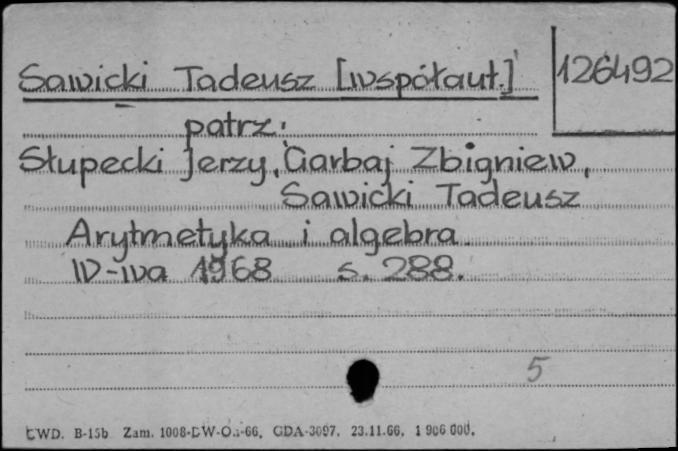 Sawicki Tadeusz [współaut.] 126492
patrz:
Słupecki Jerzy, Garbaj Zbigniew,
Sawicki Tadeusz
Arytmetyka i algebra
W-wa 1968 s. 288.
5
CWD. B-15b Zam. 1008-DW-Oa-66, GDA-3097. 23.11.66. 1 906 000.